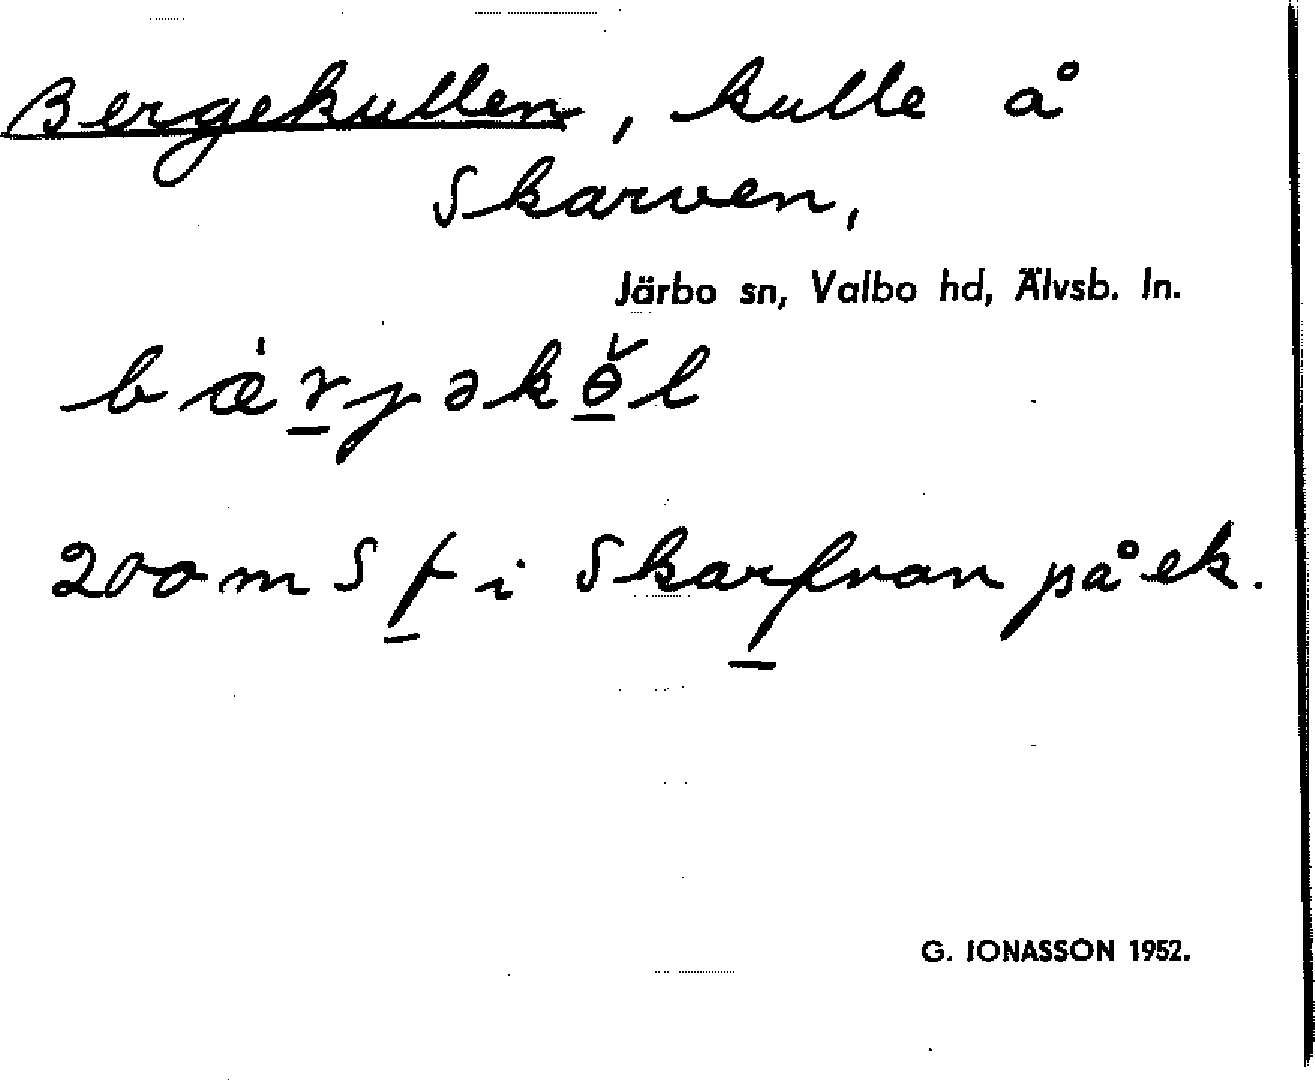 Bergekullen, kulle å
Skarven,
Järbo sn, Valbo hd, Älvsb. ln.
bæ̀rjəkɵ̌l
200 m S f i Skarfvan på ek.
G. IONASSON 1952.